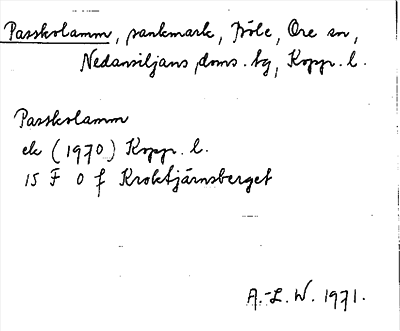 Passkolamm, sankmark, Böle, Ore sn,
Nedansiljans doms. tg, Kopp. l.
Passkolamm
ek (1970) Kopp. l.
15 F 0 f Kroktjärnsberget
A.-L. W. 1971.